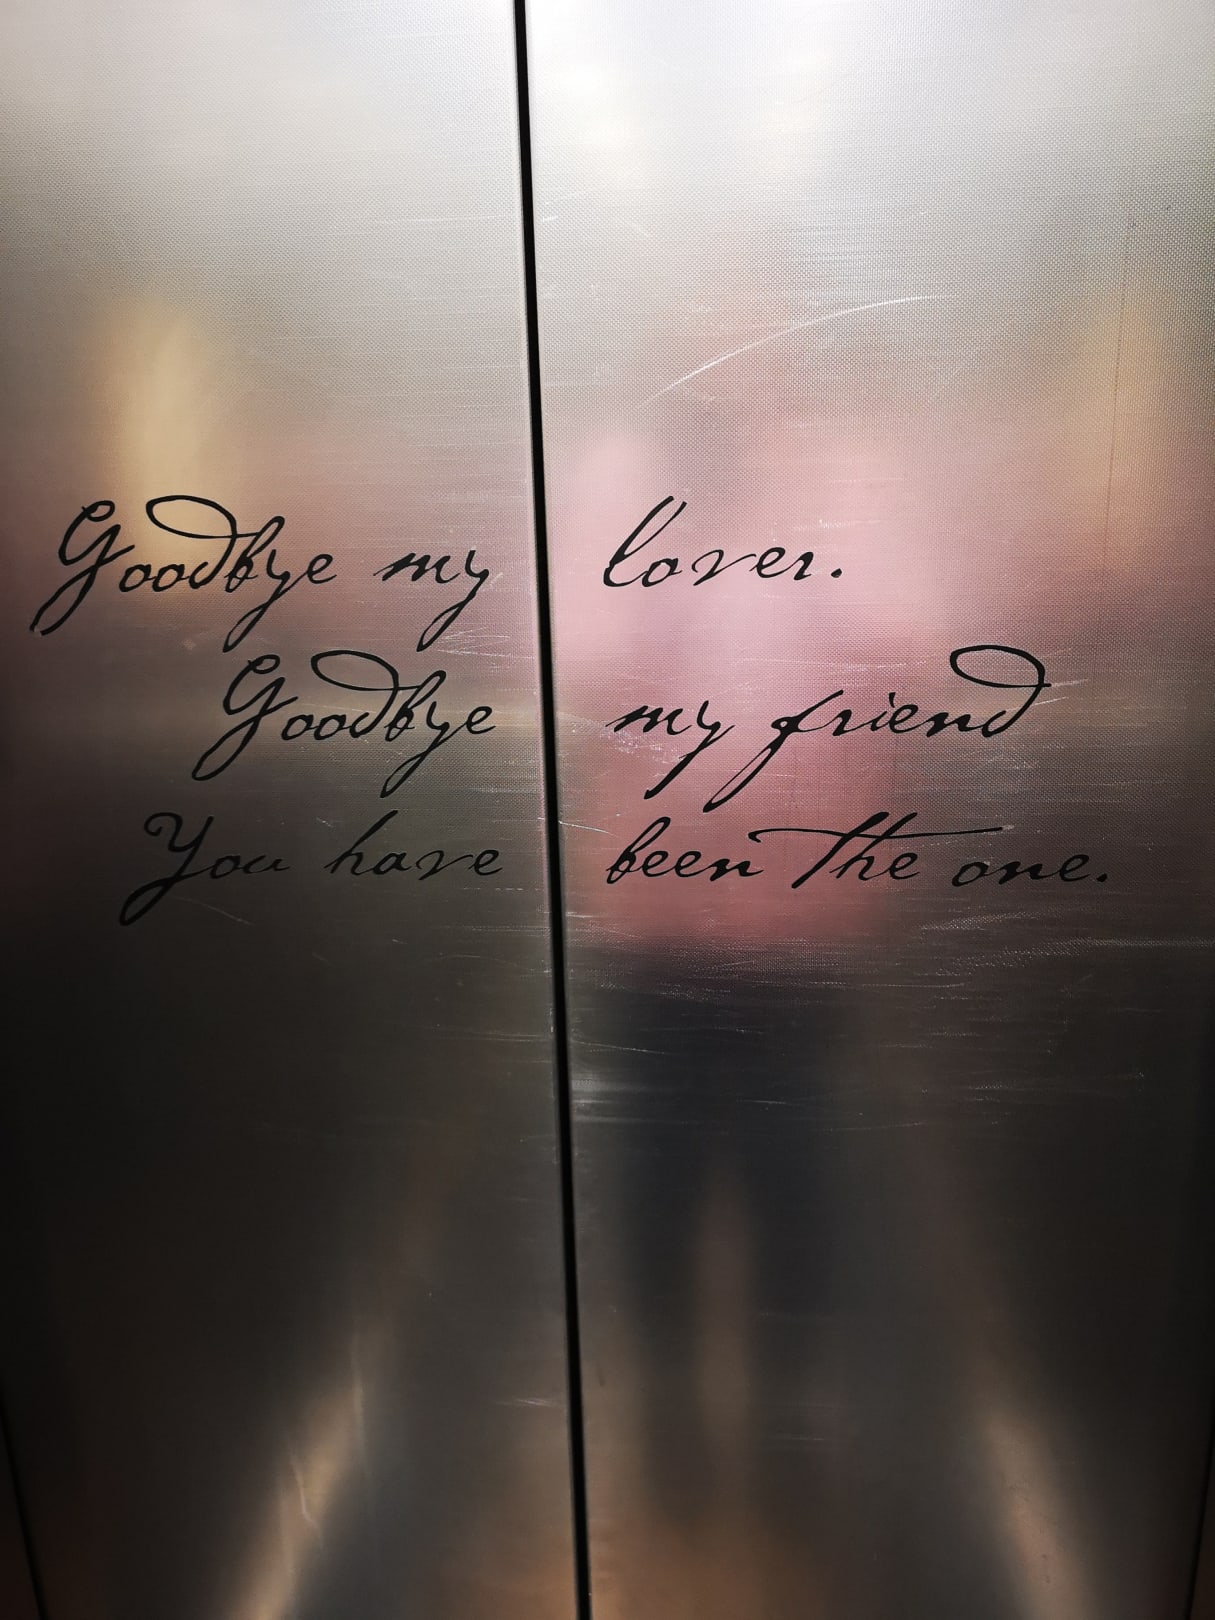 Goodbye my lover.
Goodbye my friend
You have been the one.